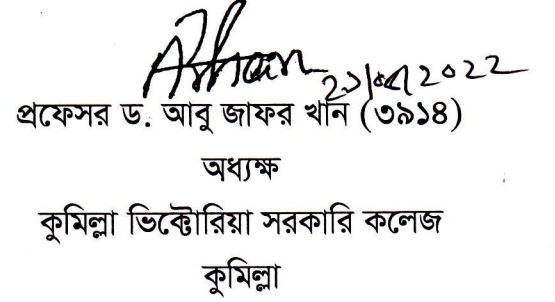 প্রফেসর ড. আবু জাফর খান (৩৯১৪)
অধ্যক্ষ
কুমিল্লা ভিক্টোরিয়া সরকারি কলেজ
কুমিল্লা